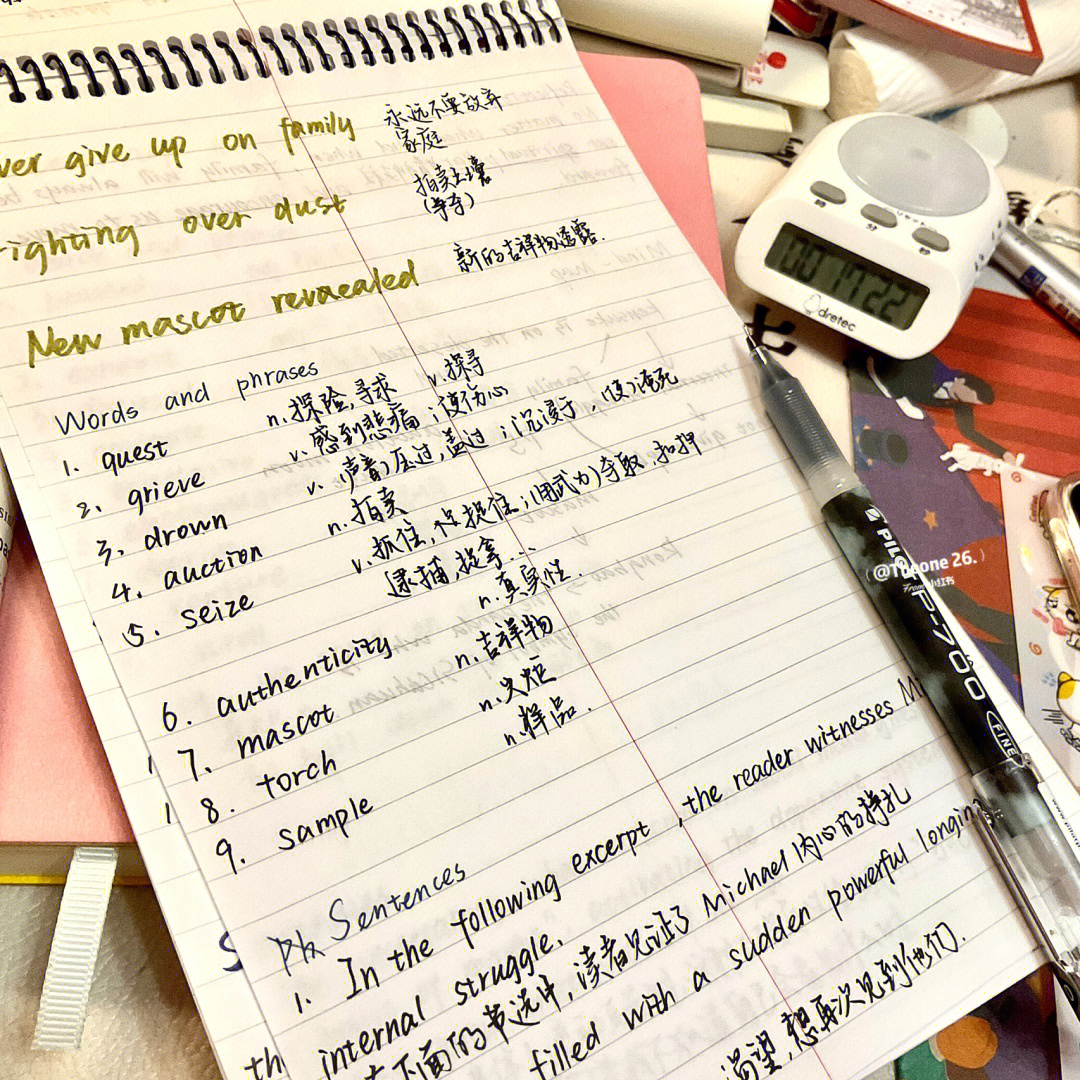 ver give up on family 永远不要放弃
家庭
righting over dust 拍卖土壤
(争夺)
New mascot revaealed 新的吉祥物透露.
Words and phrases
1. quest n.探险,寻求 v.探寻
2. grieve v.感到悲痛;使伤心
3. drown v.(声音)压过,盖过;(沉浸于,(使)淹死
4. auction n.拍卖
5. seize v.抓住,捉住;(用武力)夺取,扣押
逮捕,捉拿...
6. authenticity n.真实性.
7. mascot n.吉祥物
8. torch n.火炬
9. sample n.样品.
Sentences
1. In the following excerpt, the reader witnesses Mi
internal struggle.
下面的节选中,读者见证了Michael内心的挣扎
filled with a sudden powerful longin
渴望,想再次见到他们.
dretec
PILOT
P-700
FINE
(@Tbcone 26.)
From 小红书